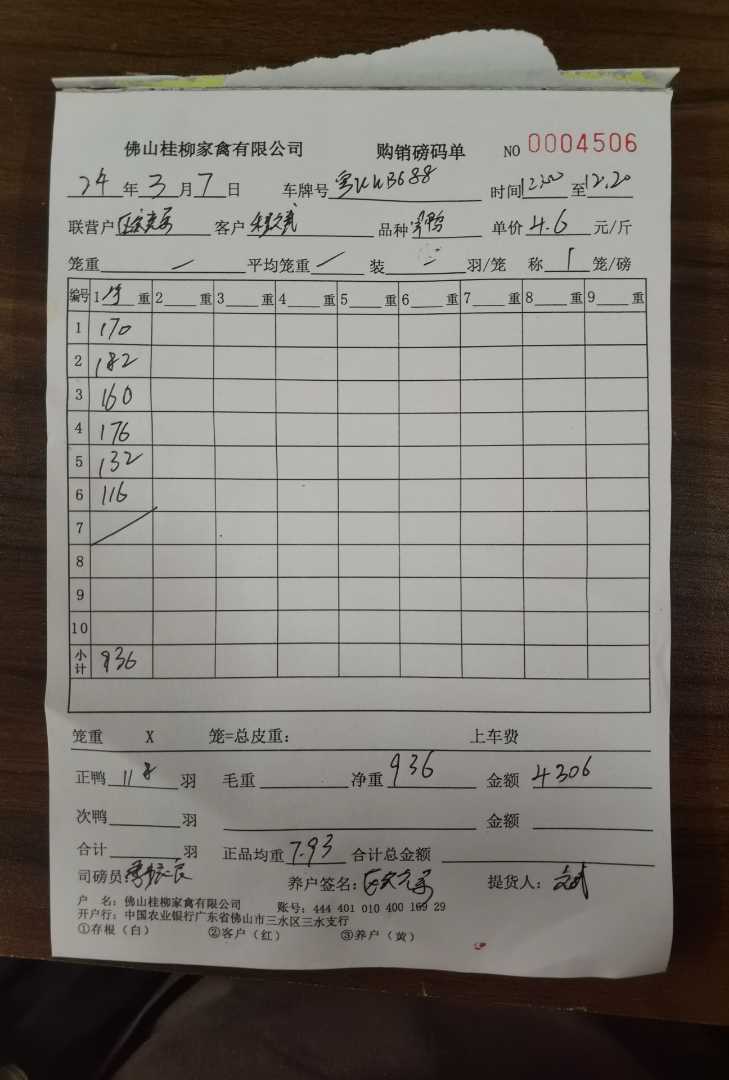 佛山桂柳家禽有限公司 购销磅码单 NO 0004506
24 年 3 月 7 日 车牌号 B688 时间 12.00 至 12.20
联营户 客户 品种 单价 4.6 元/斤
笼重 / 平均笼重 / 装 / 羽/笼 称 1 笼/磅
编号 1 重 2 重 3 重 4 重 5 重 6 重 7 重 8 重 9 重
1 170
2 182
3 160
4 176
5 132
6 116
7 /
8
9
10
小计 936
笼重 X 笼=总皮重: 上车费
正鸭 118 羽 毛重 净重 936 金额 4306
次鸭 羽 金额
合计 羽 正品均重 7.93 合计总金额
司磅员: 养户签名: 提货人:
户 名: 佛山桂柳家禽有限公司 账号: 444 401 010 400 169 29
开户行: 中国农业银行广东省佛山市三水区三水支行
①存根(白) ②客户(红) ③养户(黄)